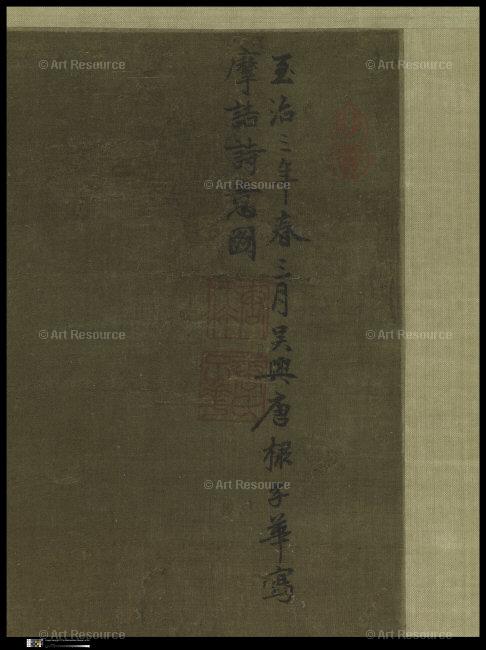 至治三年春三月吳興唐棣子華寫
摩詰詩意圖
© Art Resource © Art Resource © Art Resource
© Art Resource
© Art Resource © Art Resource © Art Resource
© Art Resource
© Art Resource © Art Resource © Art Resource